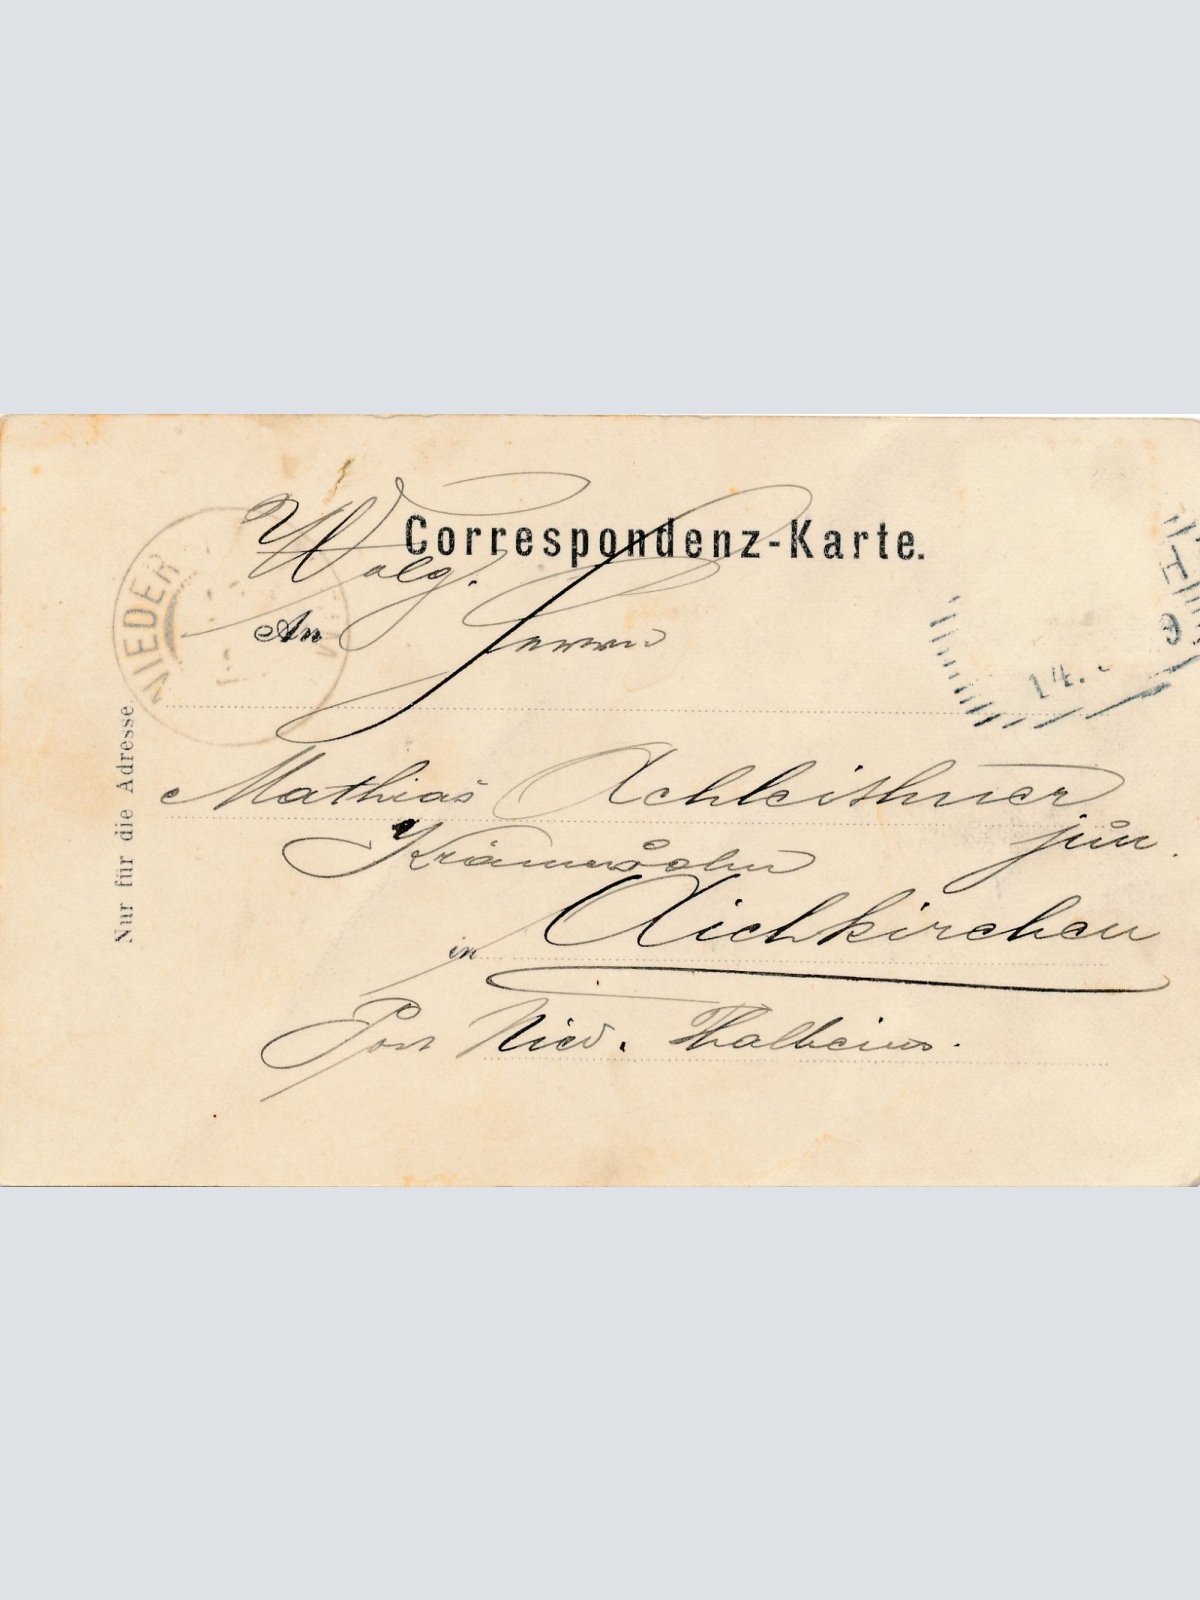 Correspondenz-Karte.
Wolg.
An Herrn
Mathias Achleithner
jun.
Krämerssohn
in Aichkirchen
Post Nied. Thalheim.
Nur für die Adresse.
NIEDER
14.
9